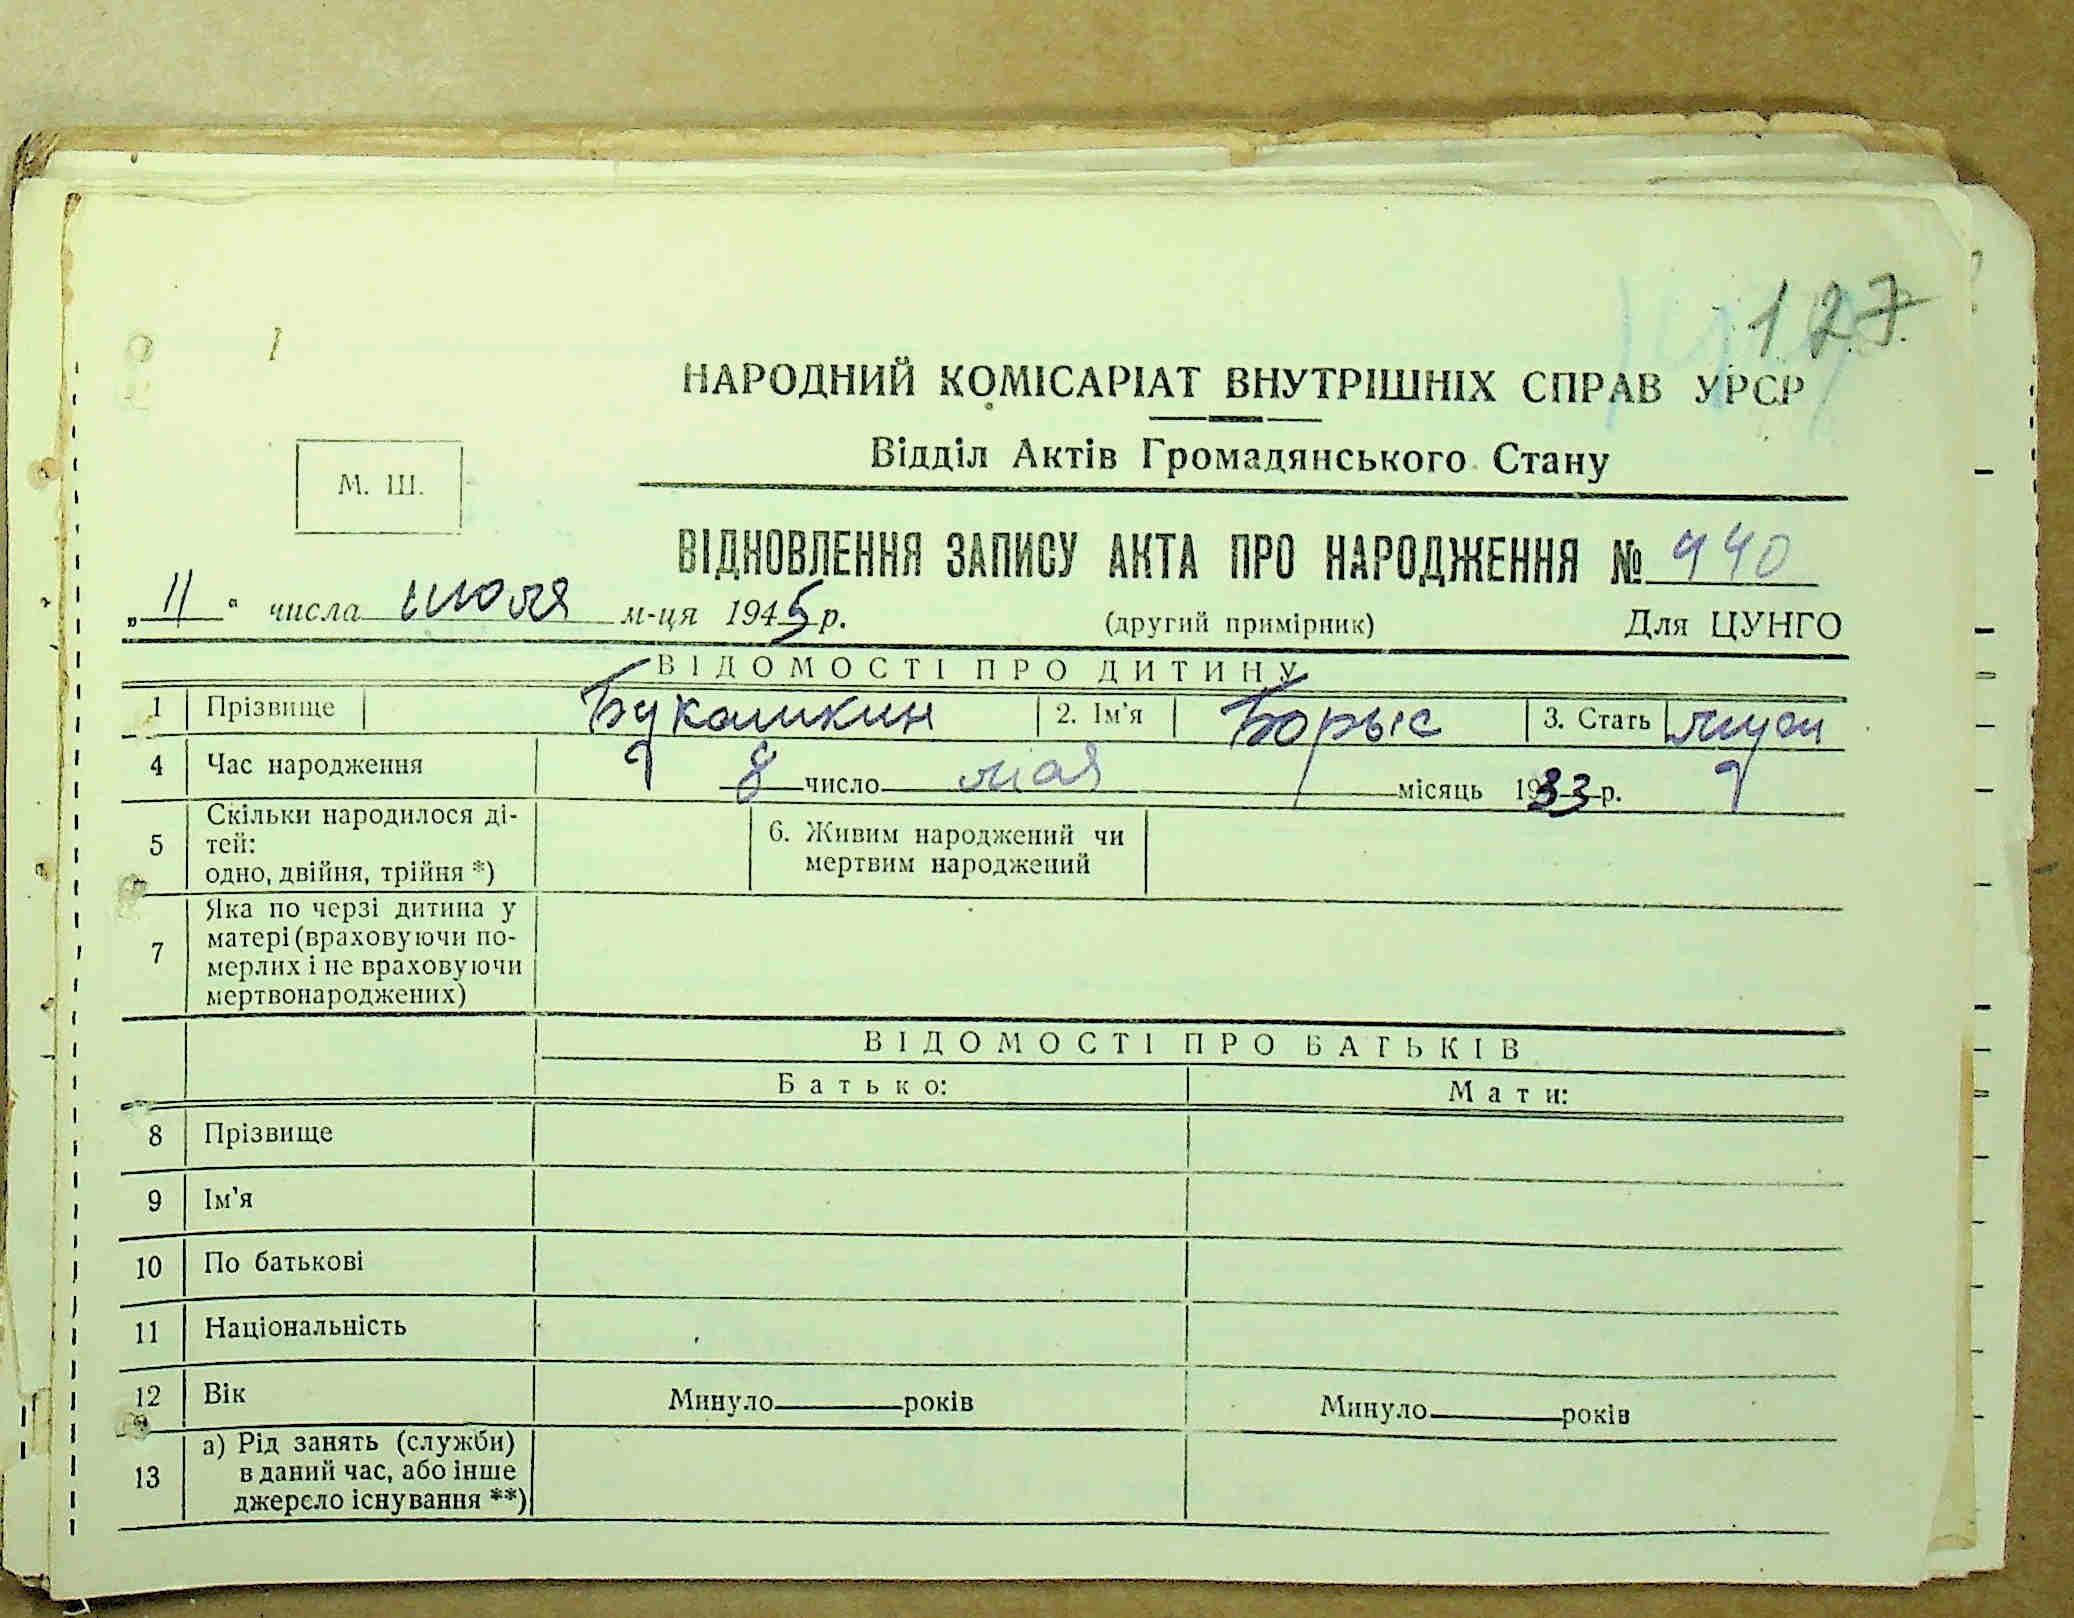 127.
1
НАРОДНИЙ КОМІСАРІАТ ВНУТРІШНІХ СПРАВ УРСР
Відділ Актів Громадянського Стану
М. Ш.
ВІДНОВЛЕННЯ ЗАПИСУ АКТА ПРО НАРОДЖЕННЯ № 440
„11“ числа июля м-ця 1945 р. (другий примірник) Для ЦУНГО
ВІДОМОСТІ ПРО ДИТИНУ
1 Прізвище Букашкин 2. Ім'я Борыс 3. Стать муж
4 Час народження 8 число мая місяць 1933 р.
5 Скільки народилося ді-
тей:
одно, двійня, трійня *)
6. Живим народжений чи
мертвим народжений
7 Яка по черзі дитина у
матері (враховуючи по-
мерлих і не враховуючи
мертвонароджених)
ВІДОМОСТІ ПРО БАТЬКІВ
Батько: Мати:
8 Прізвище
9 Ім'я
10 По батькові
11 Національність
12 Вік Минуло років Минуло років
13 а) Рід занять (служби)
в даний час, або інше
джерело існування **)